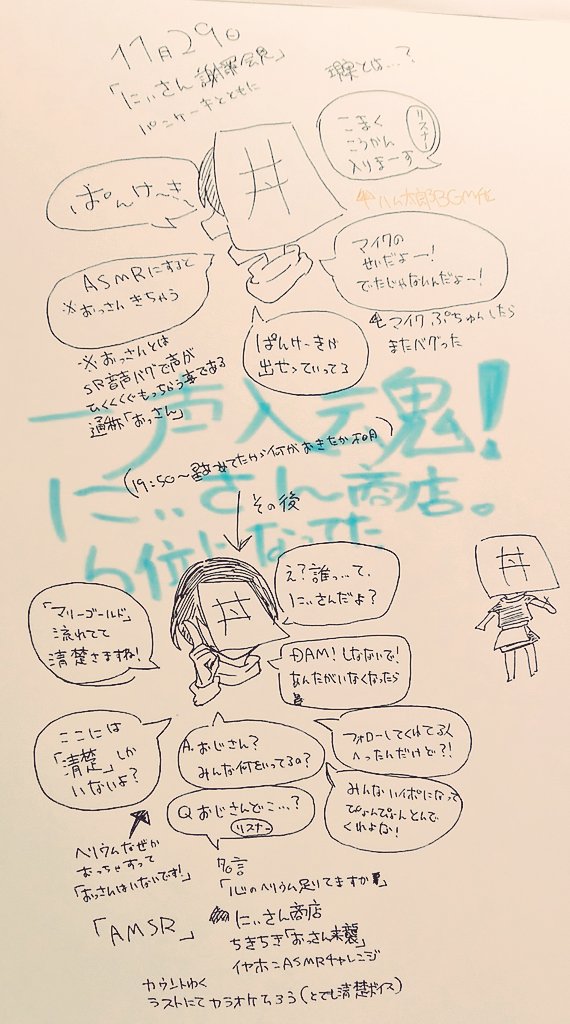 11月29日
「にぃさん謝罪会見」
パンケーキとともに
現実とは…?
リスナー
こまく
こうかん
入りまーす
ハム太郎BGM化
ぱんけーき
井
マイクの
せいだよー!
でたじゃないんだよー!
ASMRにすると
※おっさんきちゃう
マイクぷちゅんしたら
またバグった
ぱんけーきが
出せっていってる
※おっさんとは
SR音声バグで声が
ひくくくぐもっちゃう事である
通称「おっさん」
一声入魂!
にぃさん商店。
位になってた
(19:50〜
その後
井
「マリーゴールド」
流れてて
清楚さますね!
え?誰…って、
にぃさんだよ?
井
ĐAM!しないで!
あんたがいなくなったら
ここには
「清楚」しか
いないよ?
A.おじさん?
みんな何をいってるの?
フォローしてくれてる人
へったんだけど?!
Q おじさんどこ…?
リスナー
みんなハイポになって
ぴょんぴょんとんで
くれよな!
ヘリウムなぜか
おっちゃすって
「おっさんはいないです!」
名言
「心のヘリウム足りてますか
「AMSR」
にぃさん商店
ちきちき「おっさん来襲」
イヤホンASMRチャレンジ
カウントわく
ラストにてカラオケ